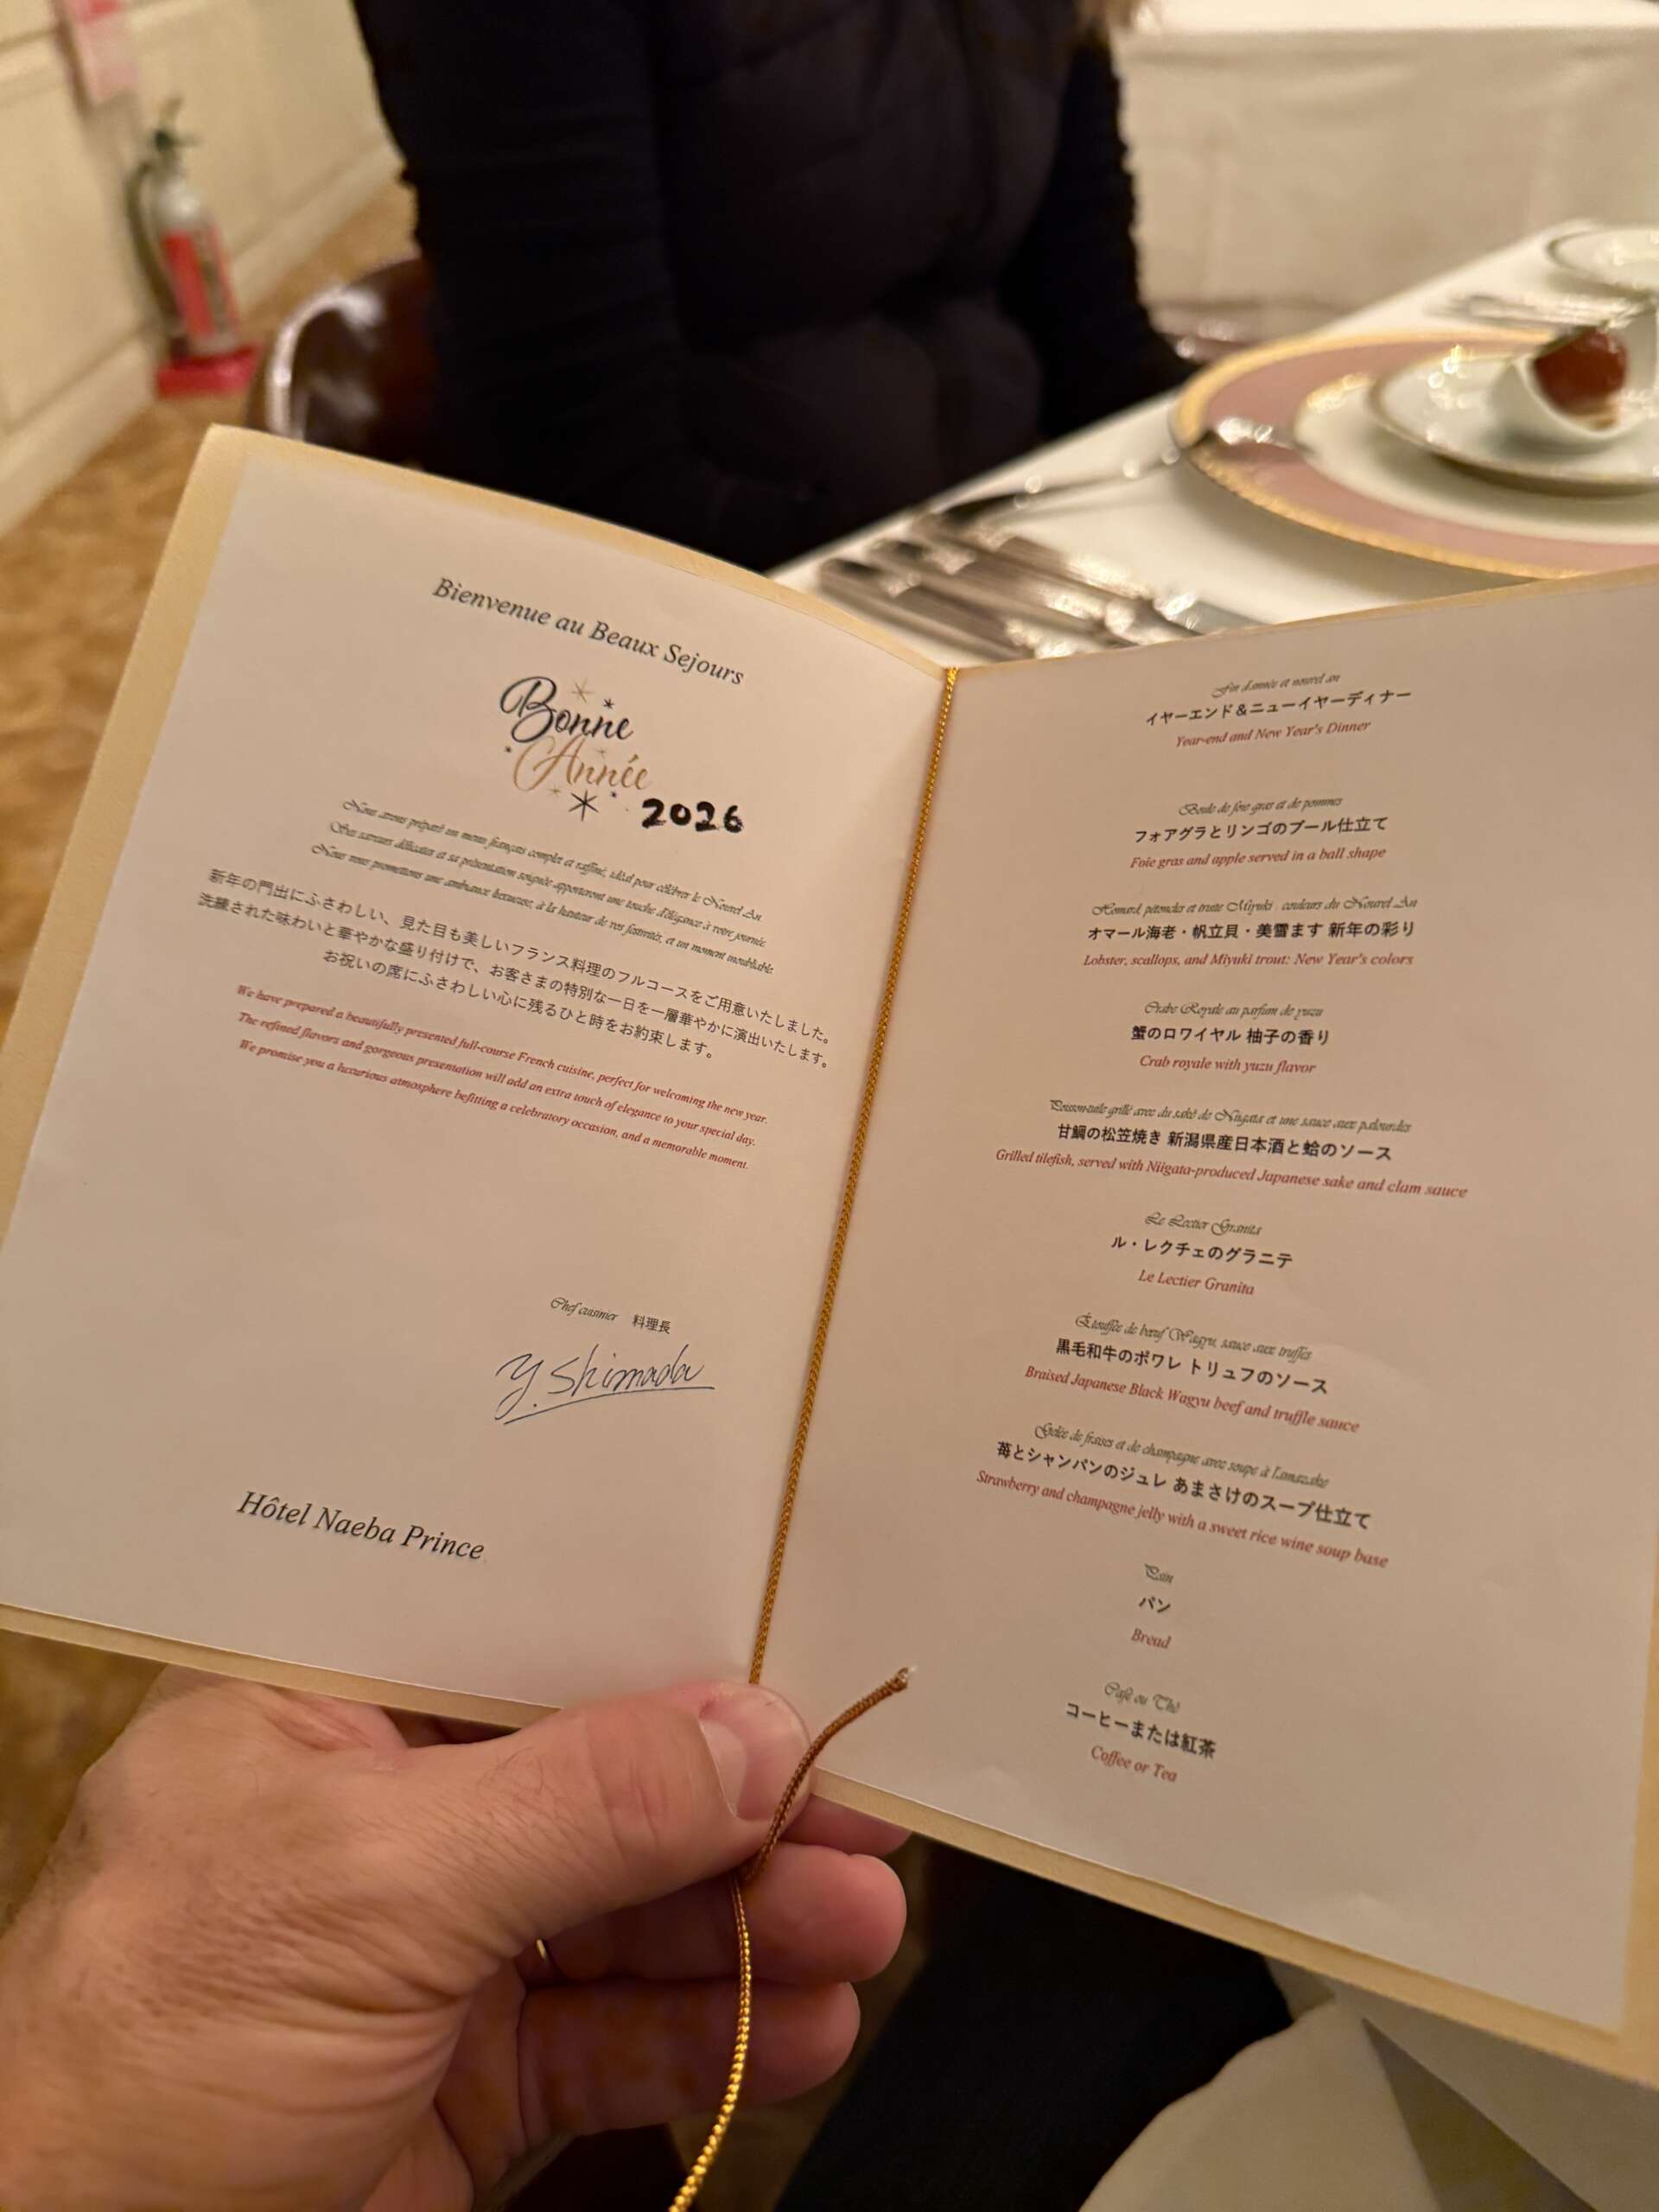 Bienvenue au Beaux Sejours
Bonne
Année
2026
Nous avons préparé un menu français complet et raffiné, idéal pour célébrer le Nouvel An
Ses saveurs délicates et sa présentation soignée apporteront une touche d'élégance à votre journée.
Nous vous promettons une ambiance luxueuse, à la hauteur de vos festivités, et un moment inoubliable
新年の門出にふさわしい、見た目も美しいフランス料理のフルコースをご用意いたしました。
洗練された味わいと華やかな盛り付けで、お客さまの特別な一日を一層華やかに演出いたします。
お祝いの席にふさわしい心に残るひと時をお約束します。
We have prepared a beautifully presented full-course French cuisine, perfect for welcoming the new year.
The refined flavors and gorgeous presentation will add an extra touch of elegance to your special day.
We promise you a luxurious atmosphere befitting a celebratory occasion, and a memorable moment.
Chef cuisinier 料理長
Y. Shimada
Hôtel Naeba Prince
Fin d'année et nouvel an
イヤーエンド&ニューイヤーディナー
Year-end and New Year's Dinner
Boule de foie gras et de pommes
フォアグラとリンゴのブール仕立て
Foie gras and apple served in a ball shape
Homard, pétoncles et truite Miyuki : couleurs du Nouvel An
オマール海老・帆立貝・美雪ます 新年の彩り
Lobster, scallops, and Miyuki trout: New Year's colors
Crabe Royale au parfum de yuzu
蟹のロワイヤル 柚子の香り
Crab royale with yuzu flavor
Poisson-tuile grillé avec du saké de Niigata et une sauce aux palourdes
甘鯛の松笠焼き 新潟県産日本酒と蛤のソース
Grilled tilefish, served with Niigata-produced Japanese sake and clam sauce
Le Lectier Granita
ル・レクチェのグラニテ
Le Lectier Granita
Étouffée de bœuf Wagyu, sauce aux truffes
黒毛和牛のポワレ トリュフのソース
Braised Japanese Black Wagyu beef and truffle sauce
Gelée de fraises et de champagne avec soupe à l'amazake
苺とシャンパンのジュレ あまさけのスープ仕立て
Strawberry and champagne jelly with a sweet rice wine soup base
Pain
パン
Bread
Café ou Thé
コーヒーまたは紅茶
Coffee or Tea